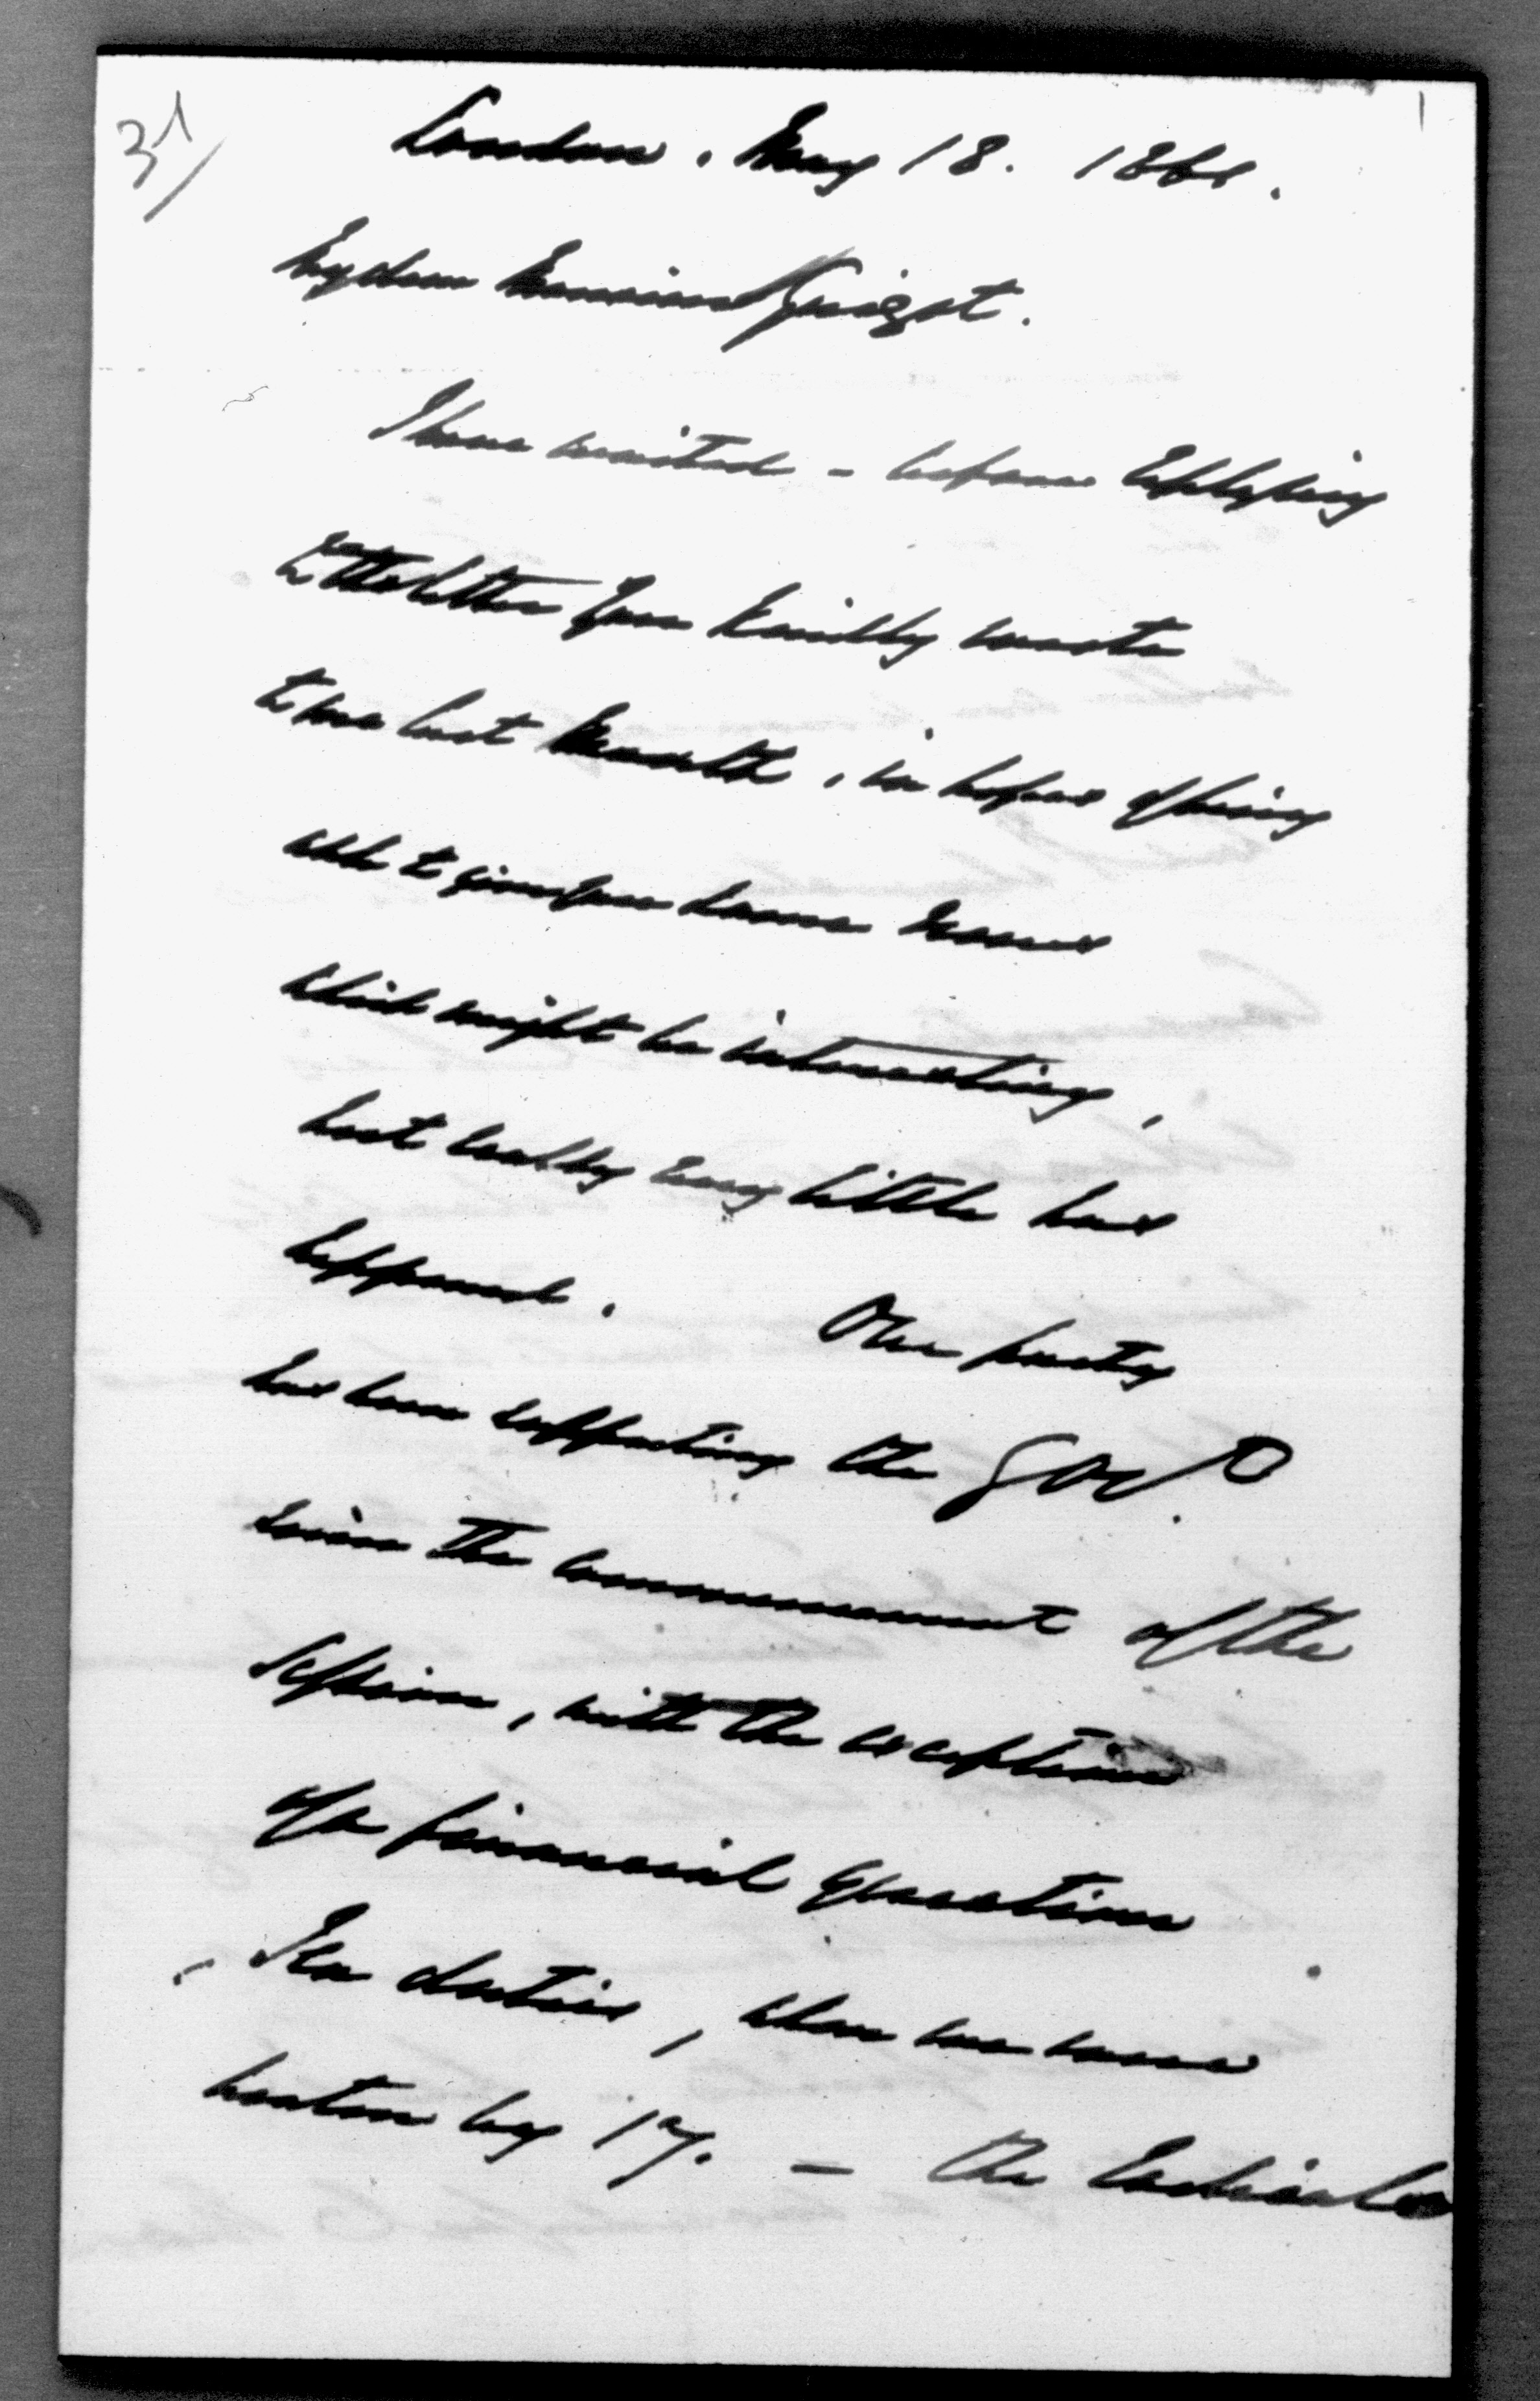 31/
London. May 18. 1861.
My dear Monsieur Guizot.
I have waited - before replying
to the letter you kindly wrote
to me last Month, in hopes of being
able to give you some news
which might be interesting,
but really very little has
happened. Our party
has been supporting the Govt.
since the commencement of the
Session, with the exception
of a financial question
- Tea duties, when we were
beaten by 17. - The Radicals